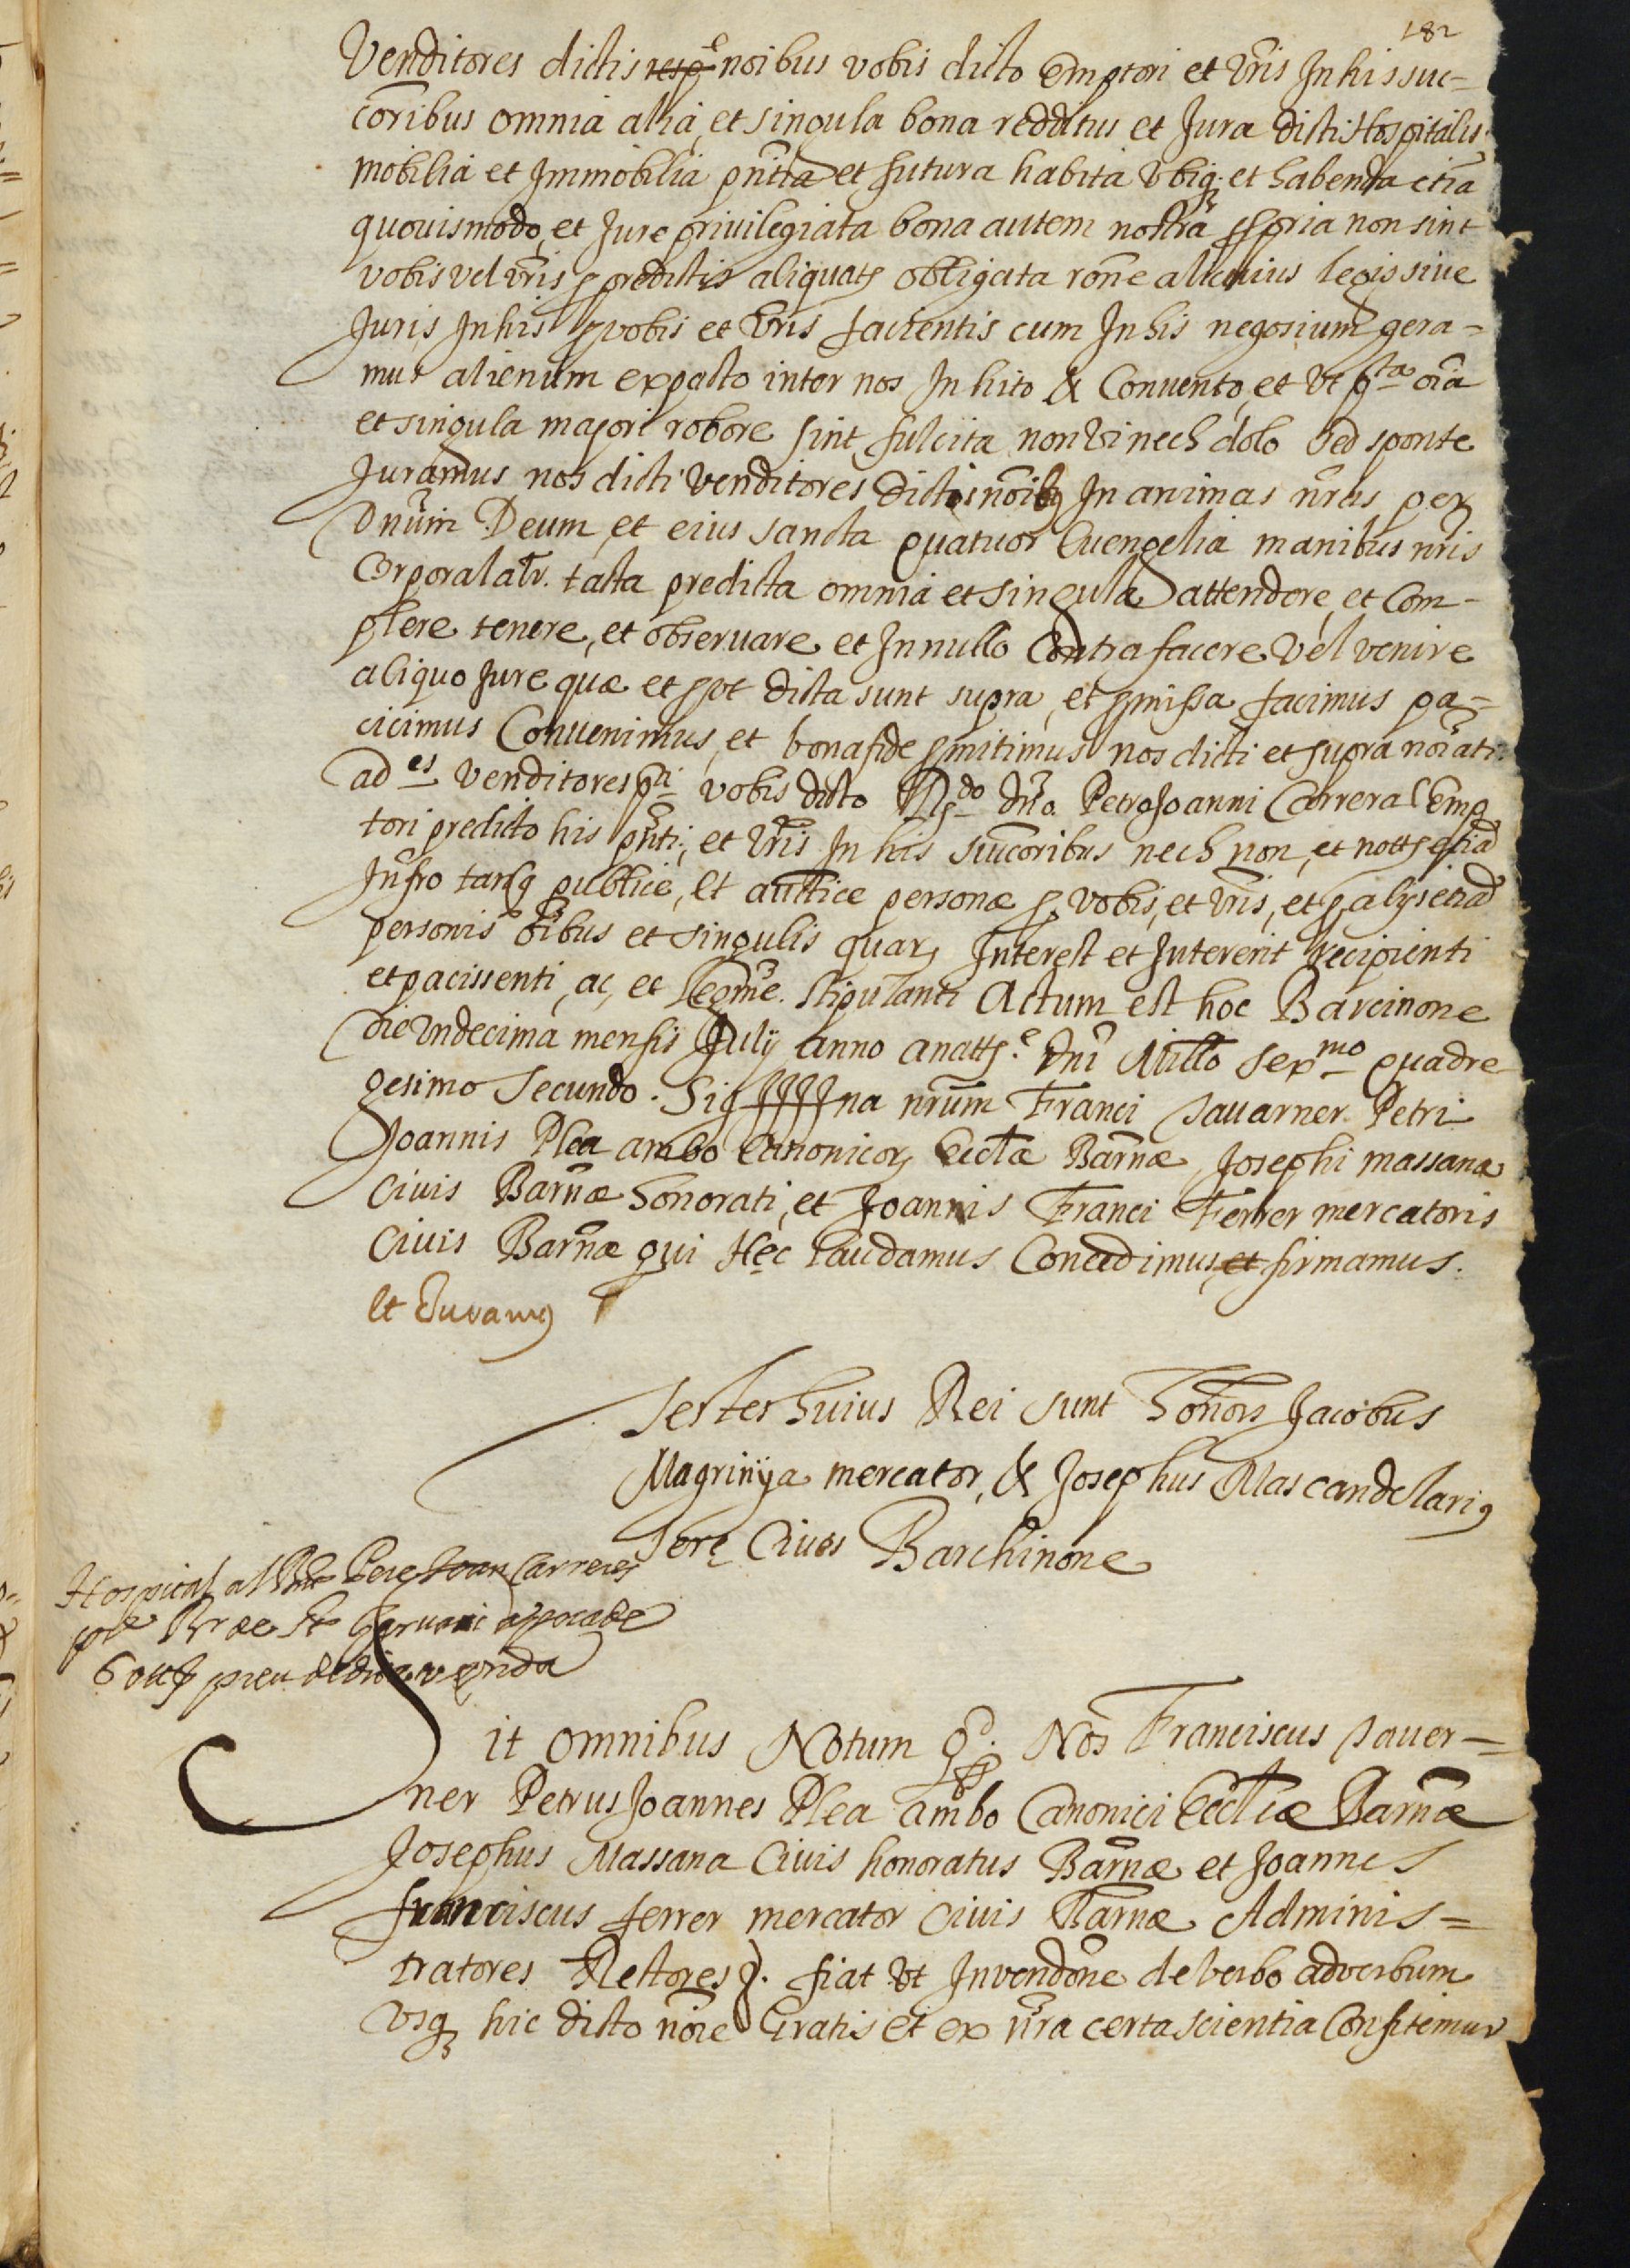 182
Venditores dictis respe noibus vobis dicto Emptori et vris In his suc=
coribus omnia alia et singula bona redditus et Jura dicti Hospitalis
mobilia et Immobilia pntia et futura habita Vbiq; et habenda etia
quovismodo, et Jure privilegiata bona autem nostra ppria non sint
vobis vel vris p predictis aliquatz obligata rone alicuius legis sive
Juris In his p vobis et vris facientis cum In his negosium gera=
mus alienum ex pacto inter nos In hito & Convento, et Vt pta oia
et singula majori robore sint fulcita non Vi nech dolo sed sponte
Juramus nos dicti venditores dictis noibq In animas nras per
Dnum Deum, et eius sancta quatuor Evengelia manibus nris
Corporalatr. tacta predicta omnia et singula attendere, et Com-
plere tenere, et observare et In nullo Contra facere vel venire
aliquo Jure quæ et put dicta sunt supra, et pmissa facimus pa=
cicimus Convenimus, et bonafide pmitimus nos dicti et supra noiati
ad es venditores pti vobis dicto Rdo dno. Petro Joanni Carrera Emp
tori predicto his pnti; et vris In his succoribus nech non, et notto etia
Infro tanq publice, et auttice personæ p vobis, et vris, et p alijs etia
personis oibus et singulis quarz Interest et Intererit recipienti
et pacissenti, ac, et legme. stipulanti Actum est hoc Barcinone
die Vndecima mensis Julij anno a natte. Dni Millo sexmo quadre
gesimo Secundo. Sig ffff na nrum Franci Savarner Petri
Joannis Plea ambo Canonicorz Ecctæ Barnæ, Josephi massana
Civis Barnæ honorati, et Joannis Franci Ferrer mercatoris
Civis Barnæ qui Hec laudamus Concedimus, et firmamus.
et Juramq
Testes huius Rei sunt honors Jacobus
Magrinya mercator, & Josephus Mas candelariq
Cives Barchinone
Hospital al Rnt Pere Joan Carreres
pre Rr de St Gervasi apoca de
preu de dita venda
Sit omnibus Notum q. Nos Franciscus Saver=
ner Petrus Joannes Plea ambo Canonici Ecctiæ Barnæ
Josephus Massana Civis honoratus Barnæ et Joannes
franciscus ferrer mercator Civis Barnæ Adminis=
tratores Rectores J. fiat Vt In vendone de verbo ad verbum
Vsq hic dicto noie Gratis et ex nra certa scientia Confitemur